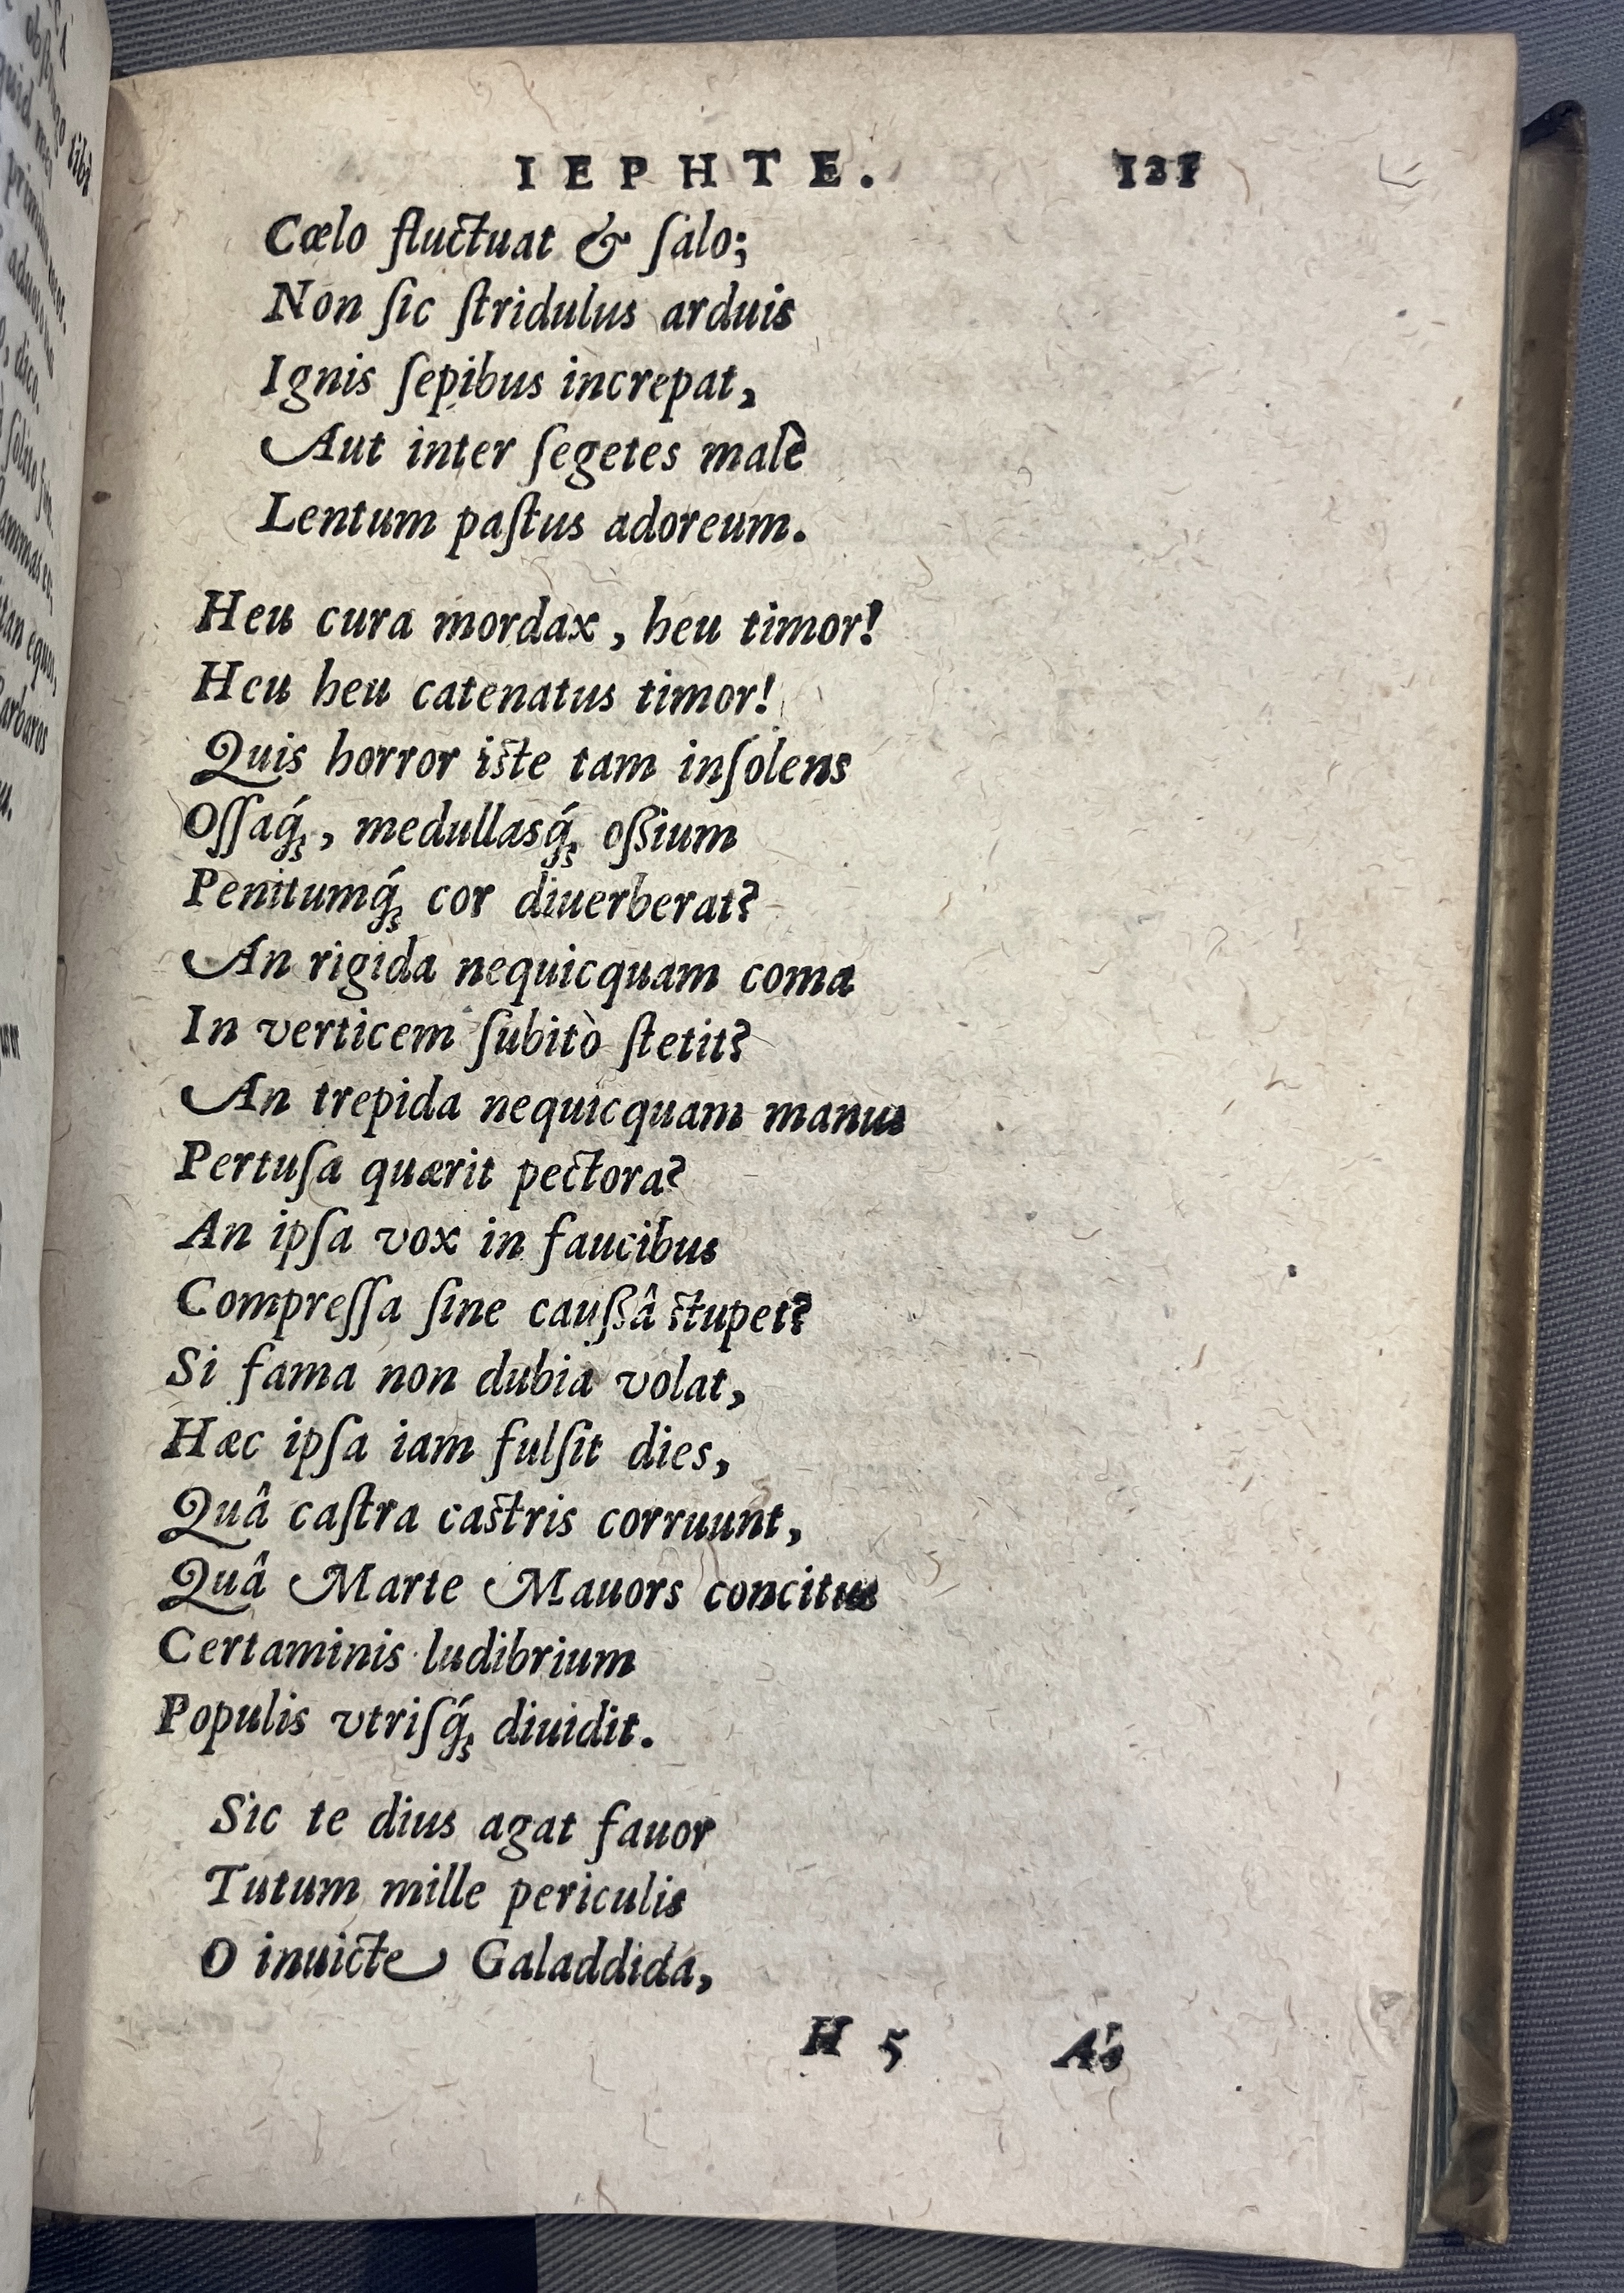 IEPHTE. 121
Cœlo fluctuat & ſalo;
Non ſic ſtridulus arduis
Ignis ſepibus increpat,
Aut inter ſegetes malè
Lentum paſtus adoreum.
Heu cura mordax, heu timor!
Heu heu catenatus timor!
Quis horror iste tam inſolens
Oſſaq́ꝫ, medullasq́ꝫ oßium
Penitumq́ꝫ cor diuerberat?
An rigida nequicquam coma
In verticem ſubitò ſtetit?
An trepida nequicquam manus
Pertuſa quærit pectora?
An ipſa vox in faucibus
Compreſſa ſine caußâ stupet?
Si fama non dubia volat,
Hæc ipſa iam fulſit dies,
Quâ caſtra castris corruunt,
Quâ Marte Mauors concitus
Certaminis ludibrium
Populis vtriſq́ꝫ diuidit.
Sic te dius agat fauor
Tutum mille periculis
O inuicte Galaddida,
H 5 As